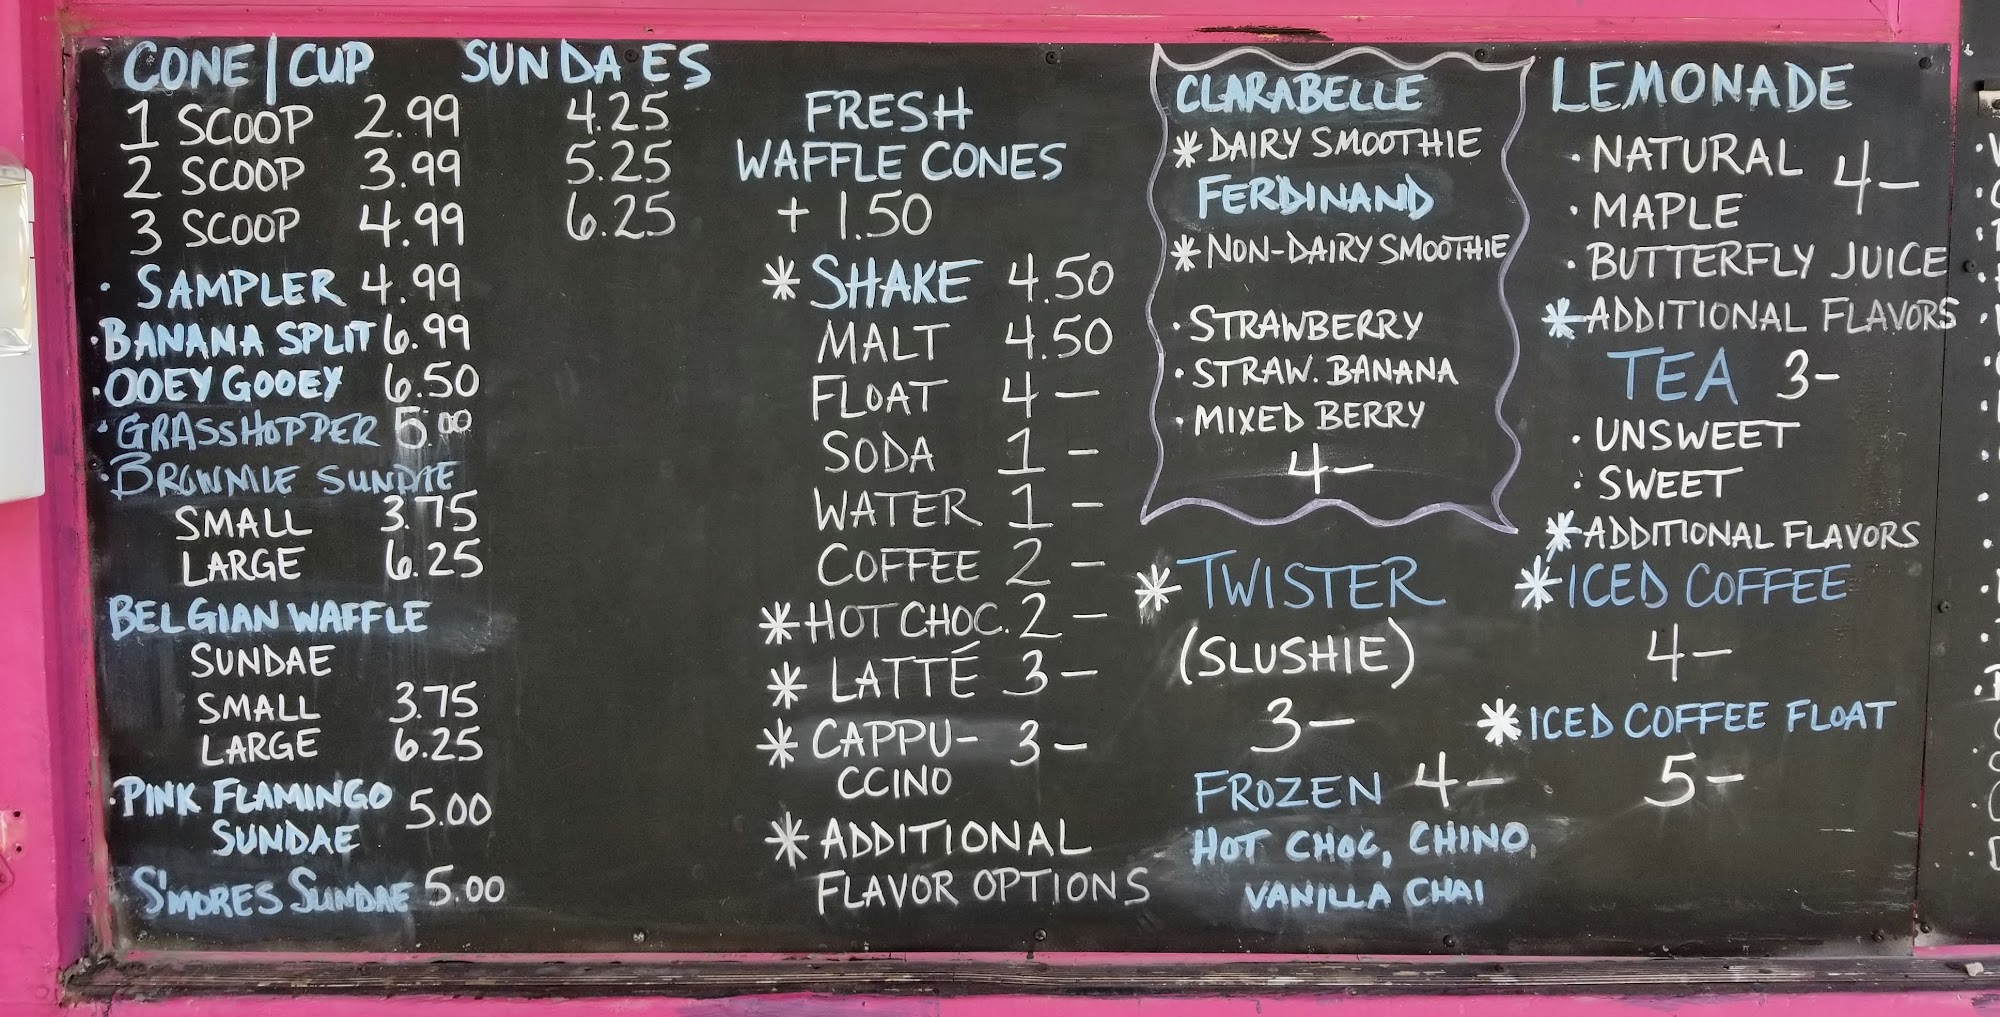 CONE/CUP SUNDAES
1 SCOOP 2.99 4.25
2 SCOOP 3.99 5.25
3 SCOOP 4.99 6.25
· SAMPLER 4.99
· BANANA SPLIT 6.99
· OOEY GOOEY 6.50
· GRASSHOPPER 5.00
· BROWNIE SUNDAE
SMALL 3.75
LARGE 6.25
BELGIAN WAFFLE
SUNDAE
SMALL 3.75
LARGE 6.25
· PINK FLAMINGO
SUNDAE 5.00
S'MORES SUNDAE 5.00
FRESH
WAFFLE CONES
+ 1.50
* SHAKE 4.50
MALT 4.50
FLOAT 4 –
SODA 1 –
WATER 1 –
COFFEE 2 –
* HOT CHOC. 2 –
* LATTÉ 3 –
* CAPPU- 3 –
CCINO
* ADDITIONAL
FLAVOR OPTIONS
CLARABELLE
* DAIRY SMOOTHIE
FERDINAND
* NON-DAIRY SMOOTHIE
· STRAWBERRY
· STRAW. BANANA
· MIXED BERRY
4 –
* TWISTER
(SLUSHIE)
3 –
FROZEN 4 –
HOT CHOC, CHINO,
VANILLA CHAI
LEMONADE
· NATURAL 4 –
· MAPLE
· BUTTERFLY JUICE
* ADDITIONAL FLAVORS
TEA 3 –
· UNSWEET
· SWEET
* ADDITIONAL FLAVORS
* ICED COFFEE
4 –
* ICED COFFEE FLOAT
5 –